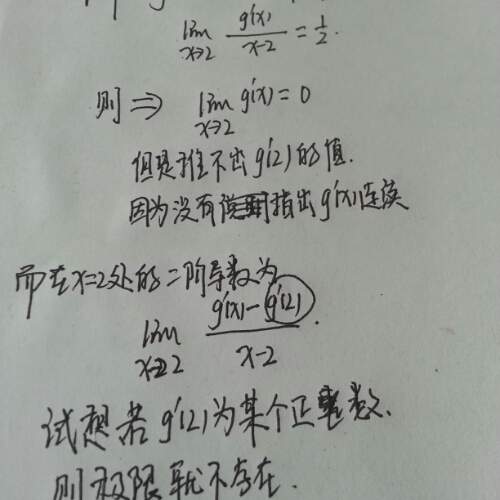 lim g'(x)/(x-2) = 1/2.
x→2
则 ⇒ lim g'(x) = 0
x→2
但是推不出g'(2)的值.
因为没有指出g'(x)连续
而在x=2处的二阶导数为
lim (g'(x) - g'(2))/(x-2).
x→2
试想若g'(2)为某个正整数.
则极限就不存在.